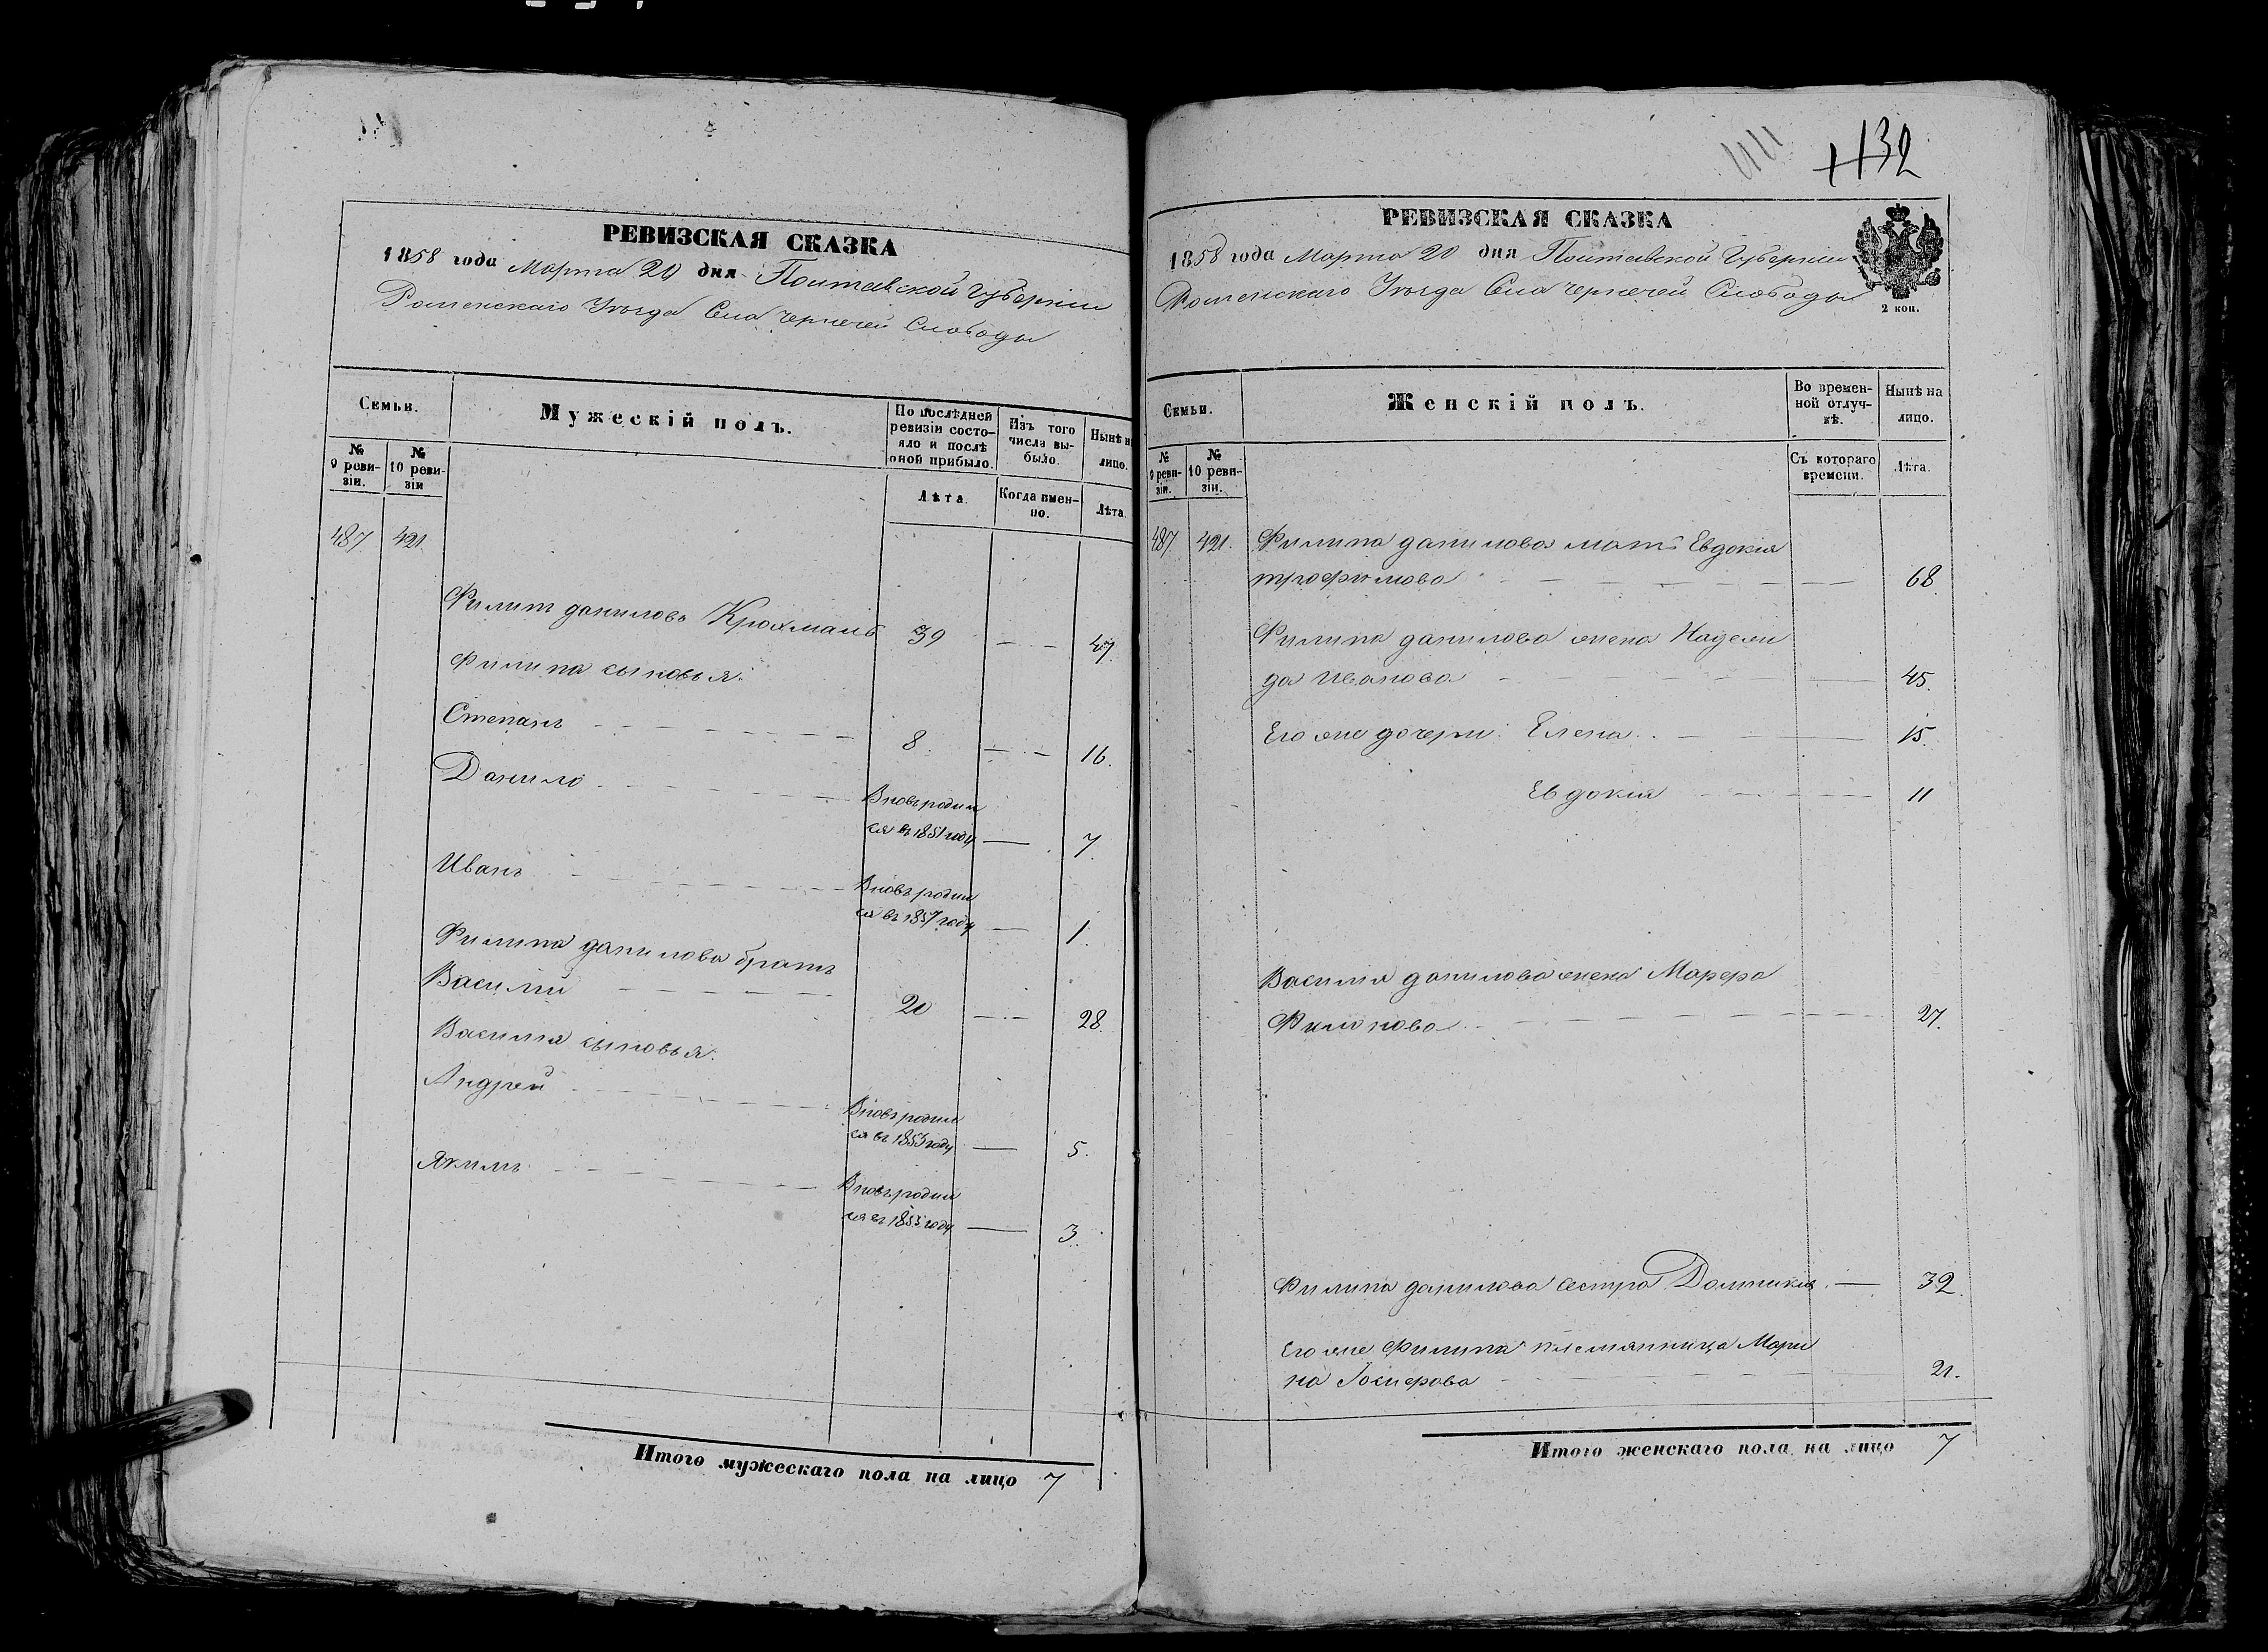 РЕВИЗСКАЯ СКАЗКА
1858 года Марта 20 дня Полтавской Губернии
Роменскаго Уѣзда Села Чернечей Слободы
Семьи.
Мужескій полъ.
По послѣдней ревизіи состояло и послѣ оной прибыло.
Изъ того числа выбыло.
Нынѣ на лицо.
№ 9 ревизіи.
№ 10 ревизіи
Лѣта.
Когда именно.
Лѣта.
487 421.
Филипъ даниловъ Крохмаль 39 47.
Филипа сыновья:
Степанъ 8. 16.
Данило Вновь родил
ся въ 1851 году 7.
Иванъ Вновь родил
ся въ 1857 году 1.
Филипа данилова братъ
Василий 20 28.
Василия сыновья:
Андрей Вновь родил
ся въ 1853 году 5.
Якимъ Вновь родил
ся въ 1855 году 3.
Итого мужескаго пола на лицо 7
132
РЕВИЗСКАЯ СКАЗКА
1858 года Марта 20 дня Полтавской Губернии
Роменскаго Уѣзда Села Чернечей Слободы
2 коп.
Семьи.
Женскій полъ.
Во временной отлучкѣ.
Нынѣ на лицо.
№ 9 ревизіи.
№ 10 ревизіи.
Съ котораго времени.
Лѣта.
487. 421. Филипа данилова мать Евдокия
трофимова 68.
Филипа данилова жена Надежи
да Иванова 45.
Его же дочери: Елена 15.
Евдокия 11
Василия данилова жена Марфа
Филипова 27.
Филипа данилова сестра Домникия 32.
Его же Филипа племянница Мари
на Іосифова 21.
Итого женскаго пола на лицо 7